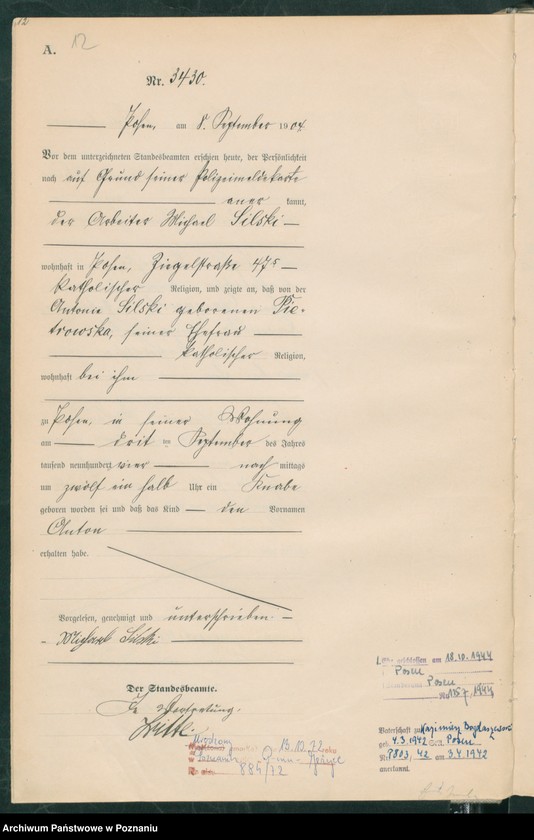 12
A. 12
Nr. 3430.
Posen, am 8. September 1904
Vor dem unterzeichneten Standesbeamten erschien heute, der Persönlichkeit
nach auf Grund seiner Polizeimeldekarte
aner kannt,
der Arbeiter Michael Silski
wohnhaft in Posen, Ziegelstraße 475
katholischer Religion, und zeigte an, daß von der
Antonie Silski geborenen Pie-
trowska, seiner Ehefrau
katholischer Religion,
wohnhaft bei ihm
zu Posen, in seiner Wohnung
am drit ten September des Jahres
tausend neunhundert vier nach mittags
um zwölf ein halb Uhr ein Knabe
geboren worden sei und daß das Kind den Vornamen
Anton
erhalten habe.
Vorgelesen, genehmigt und unterschrieben
Michael Silski
Der Standesbeamte.
In Vertretung.
geschlossen am 18.10.1944
Posen
Posen
No 1157/1944
13.10.72 roku
w Poznaniu
885/72
Vaterschaft zu Kazimierz
geb. 4.3.1942 Posen
Nr 8803, 42 am 3.4.1942
anerkannt.
Archiwum Państwowe w Poznaniu